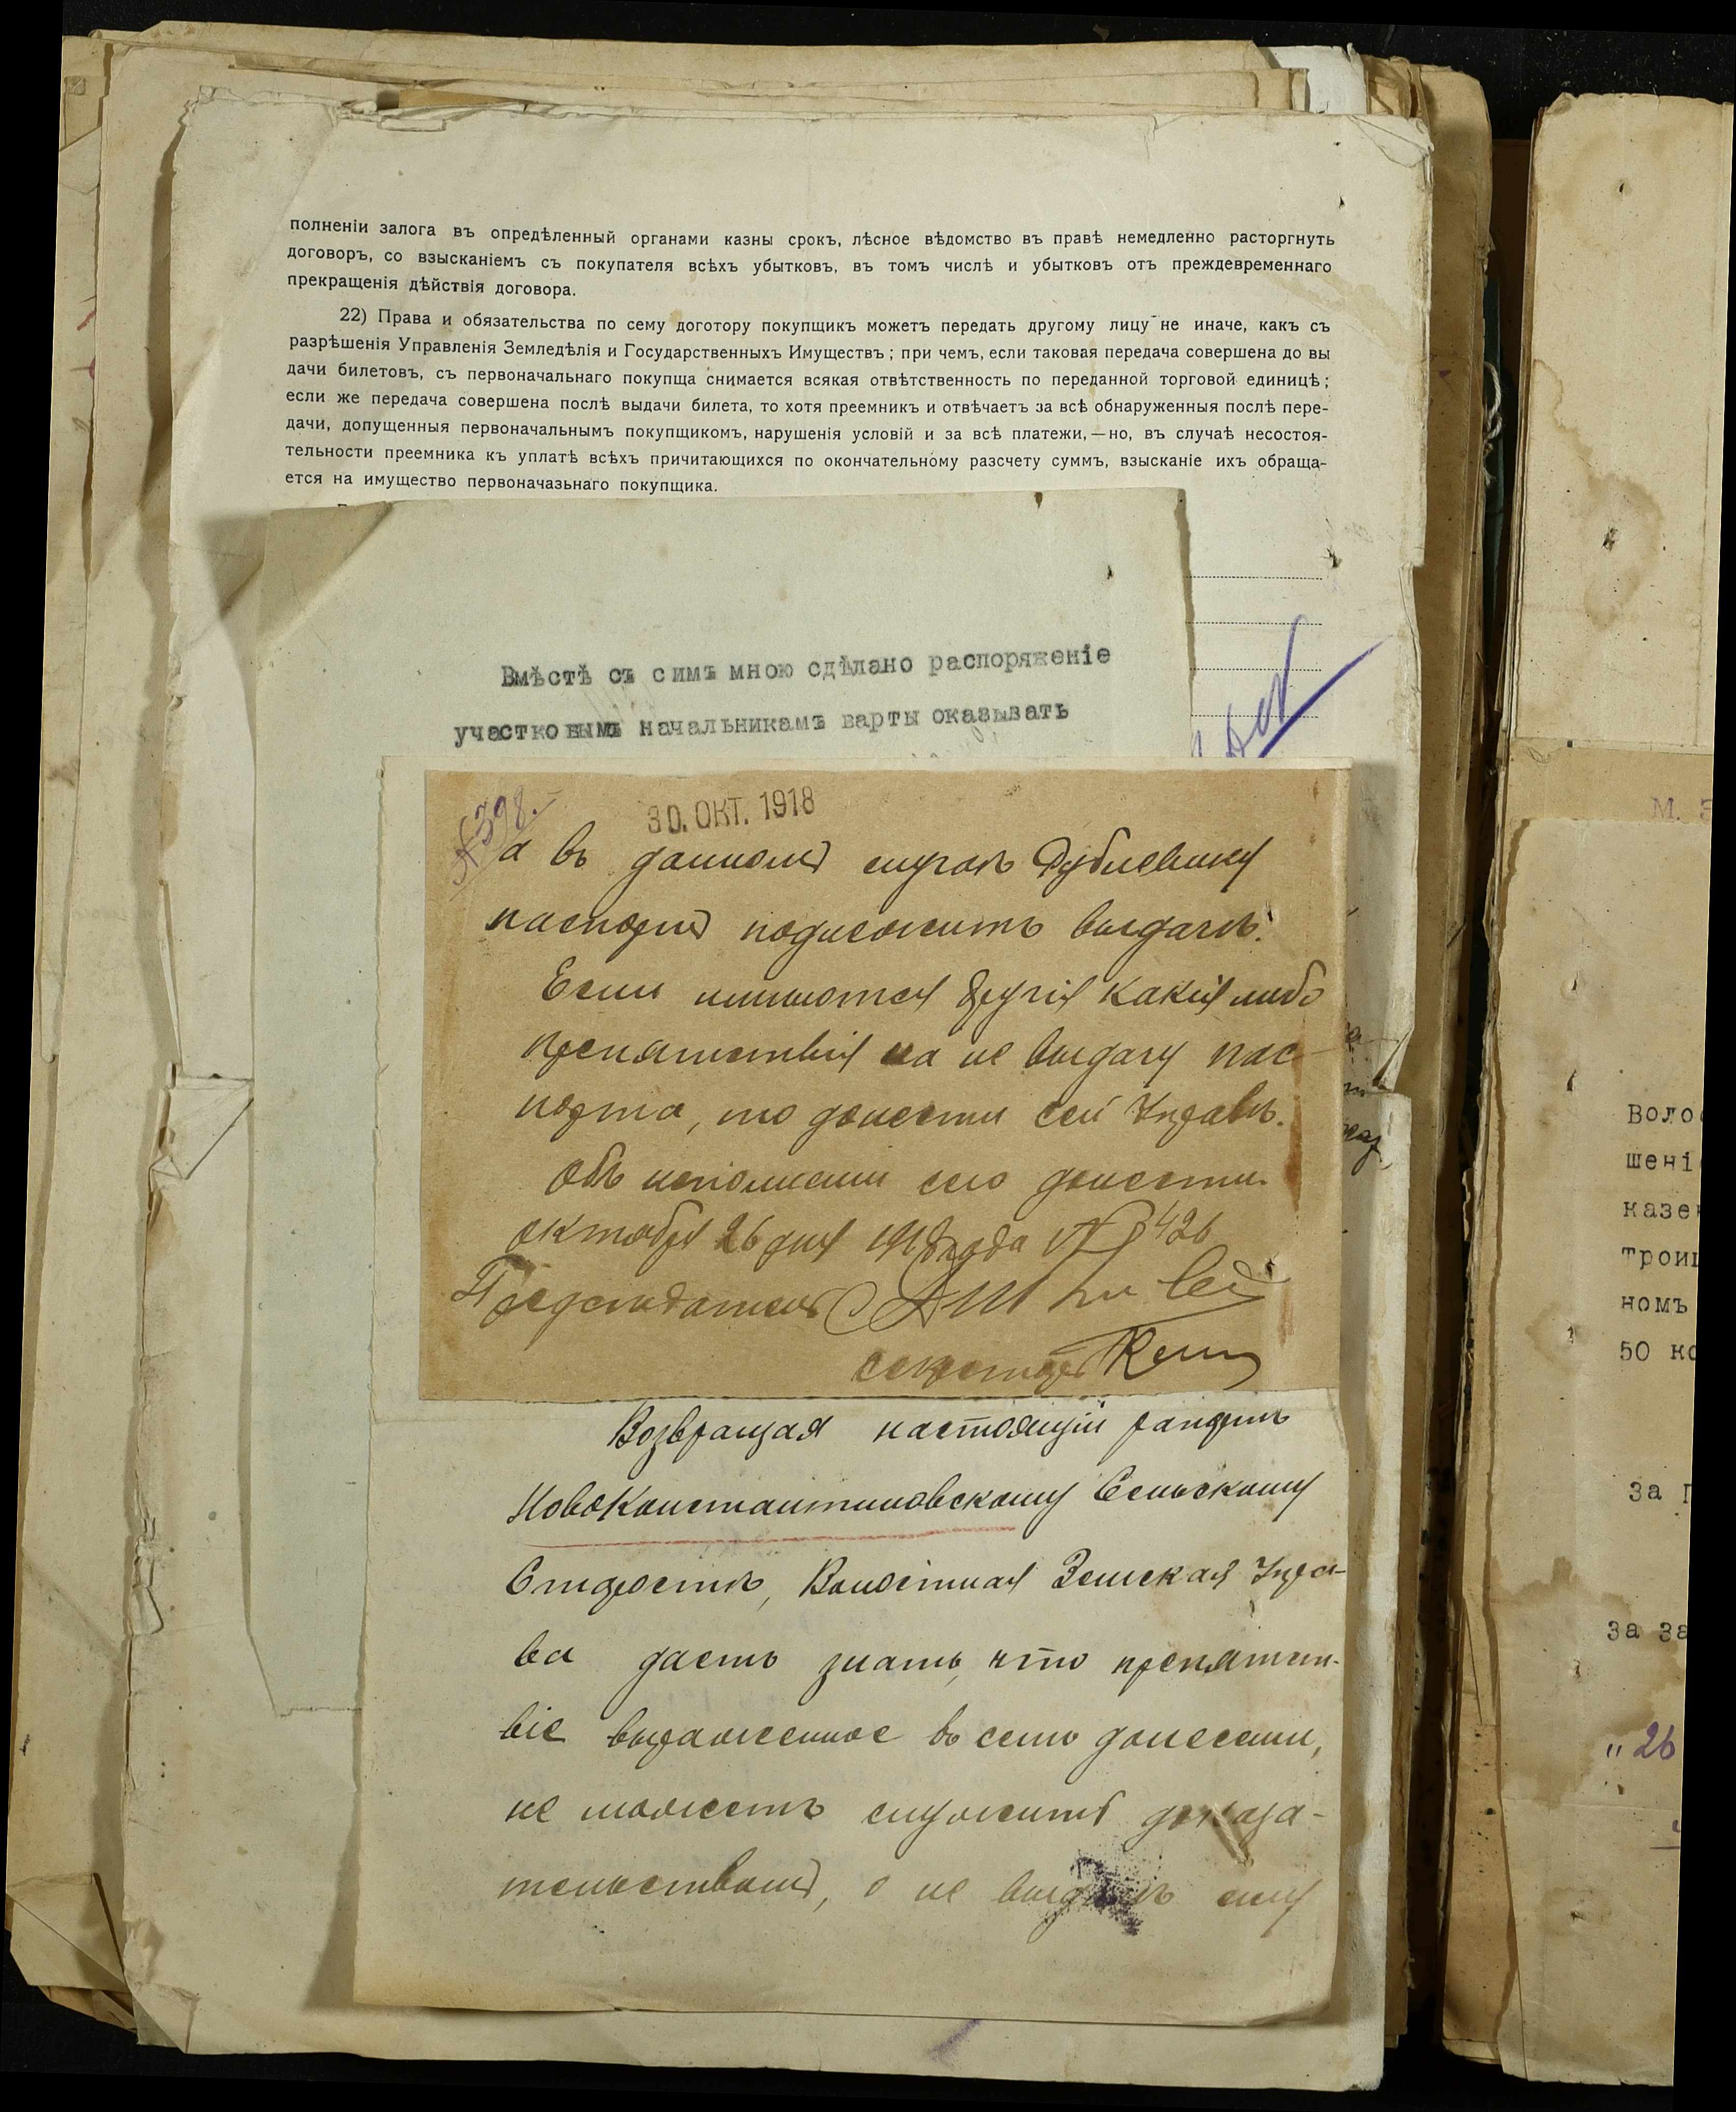 полненіи залога въ опредѣленный органами казны срокъ, лѣсное вѣдомство въ правѣ немедленно расторгнуть
договоръ, со взысканіемъ съ покупателя всѣхъ убытковъ, въ томъ числѣ и убытковъ отъ преждевременнаго
прекращенія дѣйствія договора.
22) Права и обязательства по сему договору покупщикъ можетъ передать другому лицу не иначе, какъ съ
разрѣшенія Управленія Земледѣлія и Государственныхъ Имуществъ; при чемъ, если таковая передача совершена до вы
дачи билетовъ, съ первоначальнаго покупща снимается всякая отвѣтственность по переданной торговой единицѣ;
если же передача совершена послѣ выдачи билета, то хотя преемникъ и отвѣчаетъ за всѣ обнаруженныя послѣ пере-
дачи, допущенныя первоначальнымъ покупщикомъ, нарушенія условій и за всѣ платежи,—но, въ случаѣ несостоя-
тельности преемника къ уплатѣ всѣхъ причитающихся по окончательному разсчету суммъ, взысканіе ихъ обраща-
ется на имущество первоначазьнаго покупщика.
Вмѣстѣ съ симъ мною сдѣлано распоряженіе
участковымъ начальникамъ варты оказывать
№398.
30. ОКТ. 1918
а въ данномъ случаѣ Дублевину
паспортъ подлежитъ выдачѣ.
Если имиются другія какія либо
препятствія на не выдачу пас-
порта, то донести сей Управѣ.
Объ исполнении сего донести.
октября 26 дня 1918 года №3426
Председатель
секретарь
Возвращая настоящій рапортъ
НовоКонстантиновскому Сельскому
Старостѣ, Волостная Земская Упра-
ва даетъ знать, что препятст-
віе выраженное въ семъ донесении,
не можетъ служить доказа-
тельствомъ, о не выдачѣ ему
Воло
шені
казе
трои
номъ
50 ко
За
За за
"26